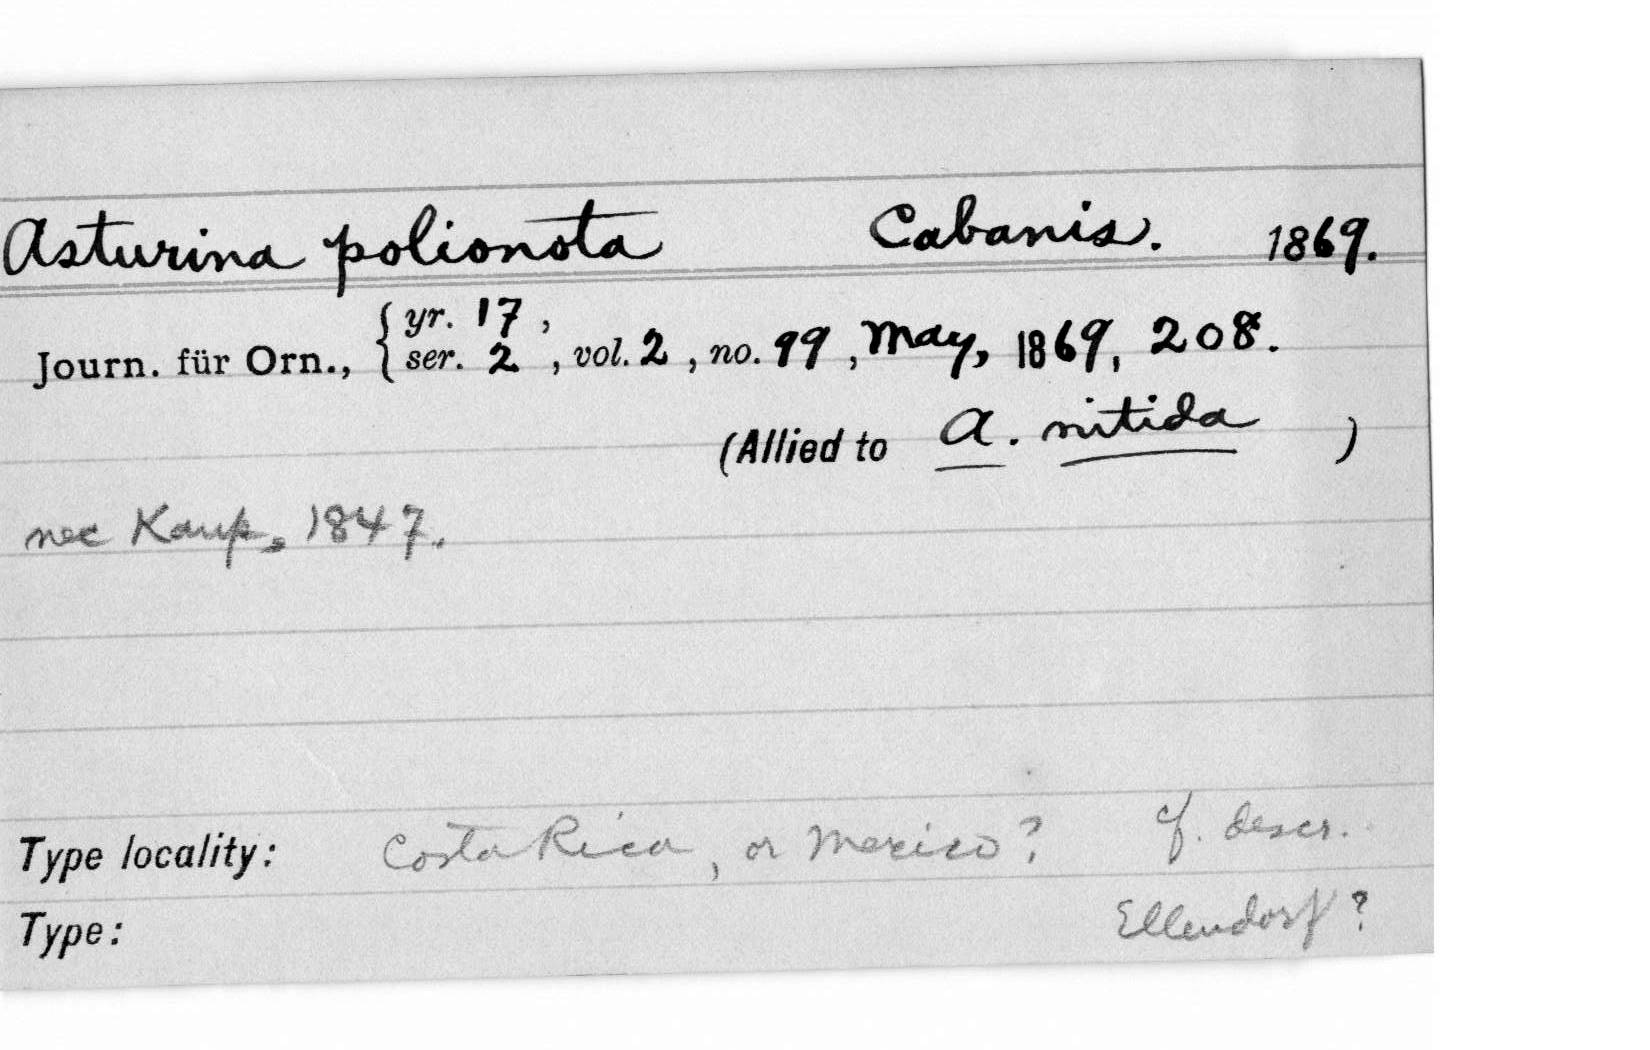 Asturina polionota Cabanis. 1869.
Journ. für Orn., { yr. 17, ser. 2, vol. 2, no. 99, May, 1869, 208.
(Allied to A. nitida )
nec Kaup, 1847.
Type locality: Costa Rica, or Mexico? cf. descr.
Type: Ellendorf?